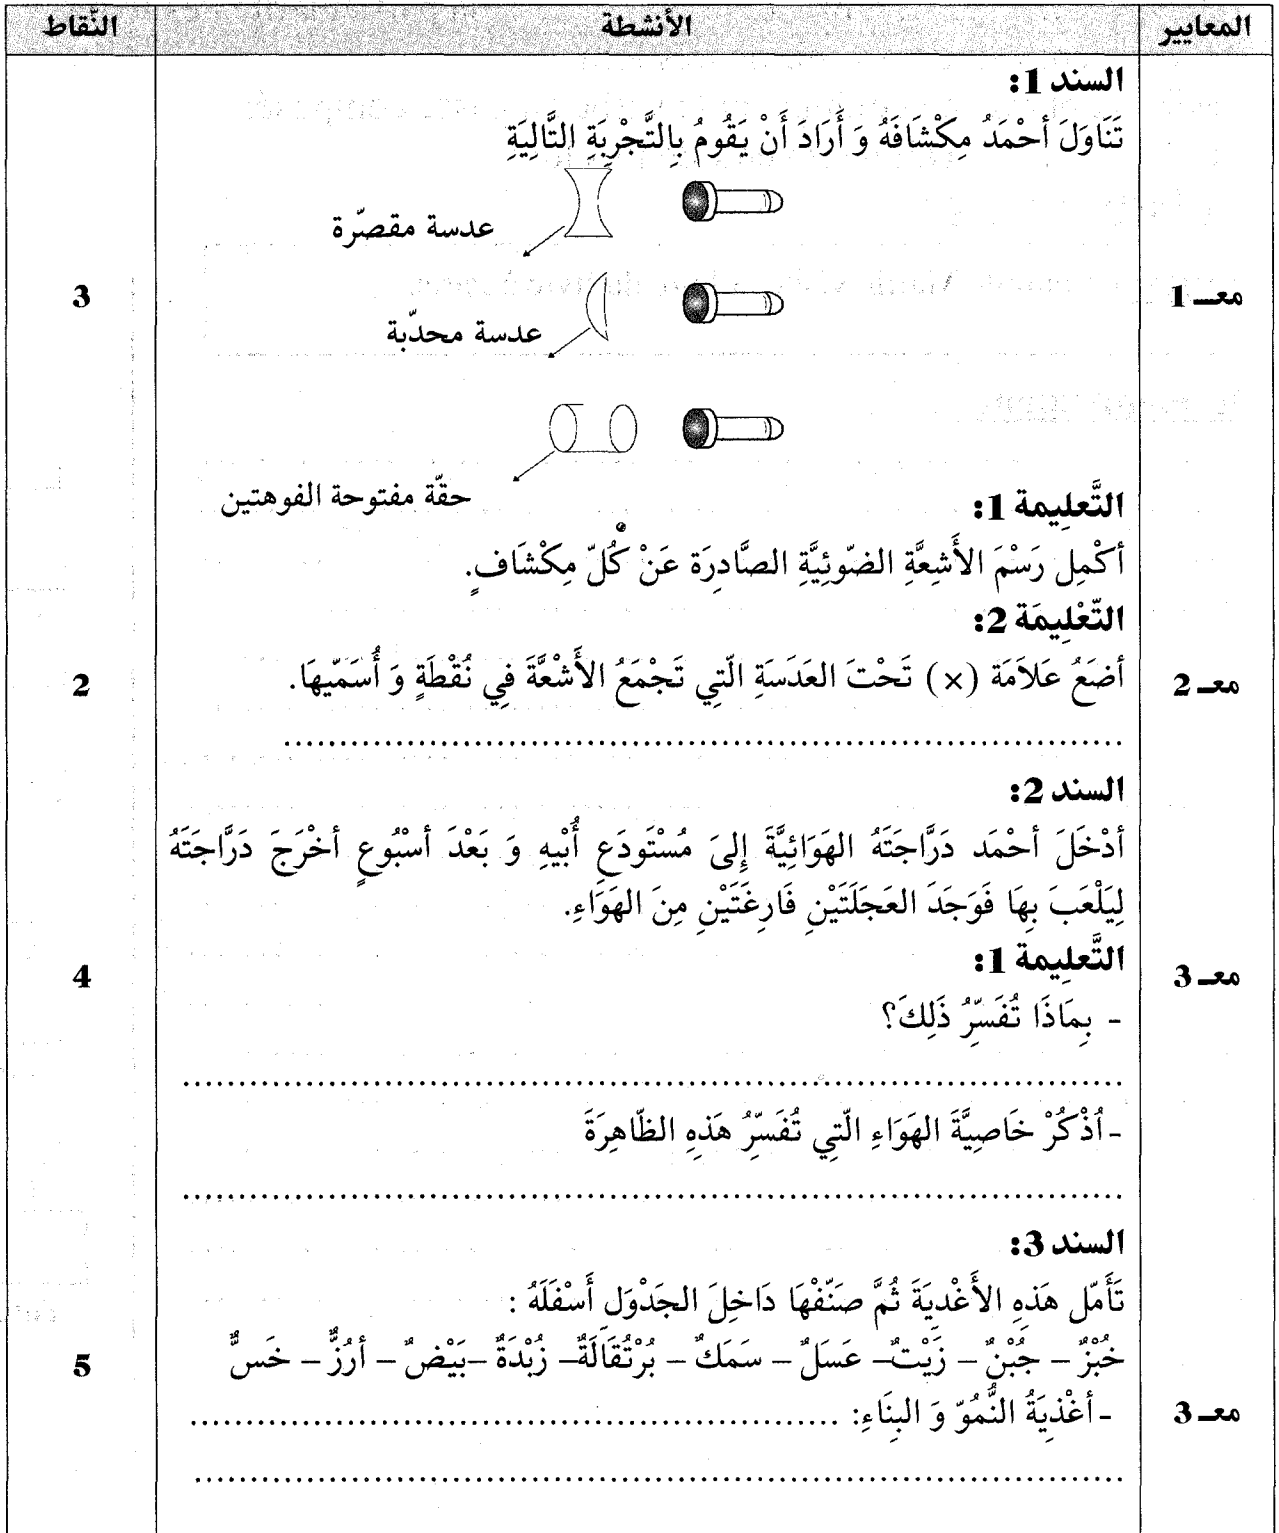 المعايير
الأنشطة
النّقاط
السند 1:
تَنَاوَلَ أحْمَدُ مِكْشَافَهُ وَ أَرَادَ أَنْ يَقُومُ بِالتَّجْرِبَةِ التَّالِيَةِ
عدسة مقصّرة
معـ 1
3
عدسة محدّبة
حقّة مفتوحة الفوهتين
التَّعلِيمة 1:
أكْمِل رَسْمَ الأَشِعَّةِ الضّوئِيَّةِ الصَّادِرَة عَنْ كُلّ مِكْشَافٍ.
التّعْلِيمَة 2:
أضَعُ عَلاَمَة (×) تَحْتَ العَدَسَةِ الّتِي تَجْمَعُ الأَشْعَّةَ فِي نُقْطَةٍ وَ أُسَمّيهَا.
معـ 2
2
................................................................................
السند 2:
أدْخَلَ أحْمَد دَرَّاجَتَهُ الهَوَائِيَّةَ إِلىَ مُسْتَودَعِ أَبْيهِ وَ بَعْدَ أسْبُوعٍ أخْرَجَ دَرَّاجتَهُ
لِيَلْعَبَ بِهَا فَوَجَدَ العَجَلَتَيْنِ فَارِغَتَيْنِ مِنَ الهَوَاءِ.
التَّعلِيمة 1:
معـ 3
4
- بِمَاذَا تُفَسّرُ ذَلِكَ؟
................................................................................
- اُذْكُرْ خَاصِيَّةَ الهَوَاءِ الّتِي تُفَسّرُ هَذِهِ الظّاهِرَةَ
................................................................................
السند 3:
تَأَمّل هَذِهِ الأَغْذِيَةَ ثُمَّ صَنّفْهَا دَاخِلَ الجَدْوَلِ أَسْفَلَهُ :
خُبْزٌ – جُبْنٌ – زَيْتٌ– عَسَلٌ – سَمَكٌ – بُرْتُقَالَةٌ– زُبْدَةٌ –بَيْضٌ – أرُزٌّ – خَسٌّ
5
- أغْذِيَةُ النُّمُوّ وَ البِنَاءِ: ............................................................
معـ 3
................................................................................